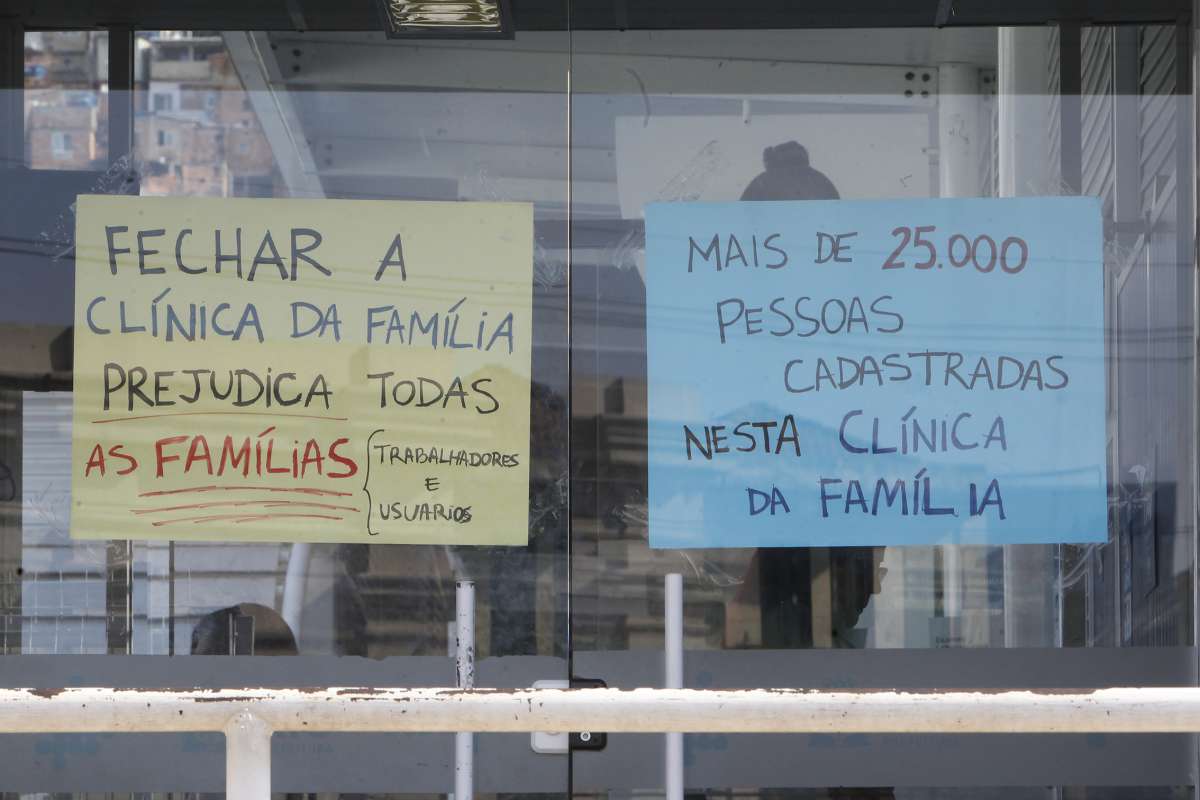 FECHAR A
CLÍNICA DA FAMÍLIA
PREJUDICA TODAS
AS FAMÍLIAS
TRABALHADORES
E
USUARIOS
MAIS DE 25.000
PESSOAS
CADASTRADAS
NESTA CLÍNICA
DA FAMÍLIA